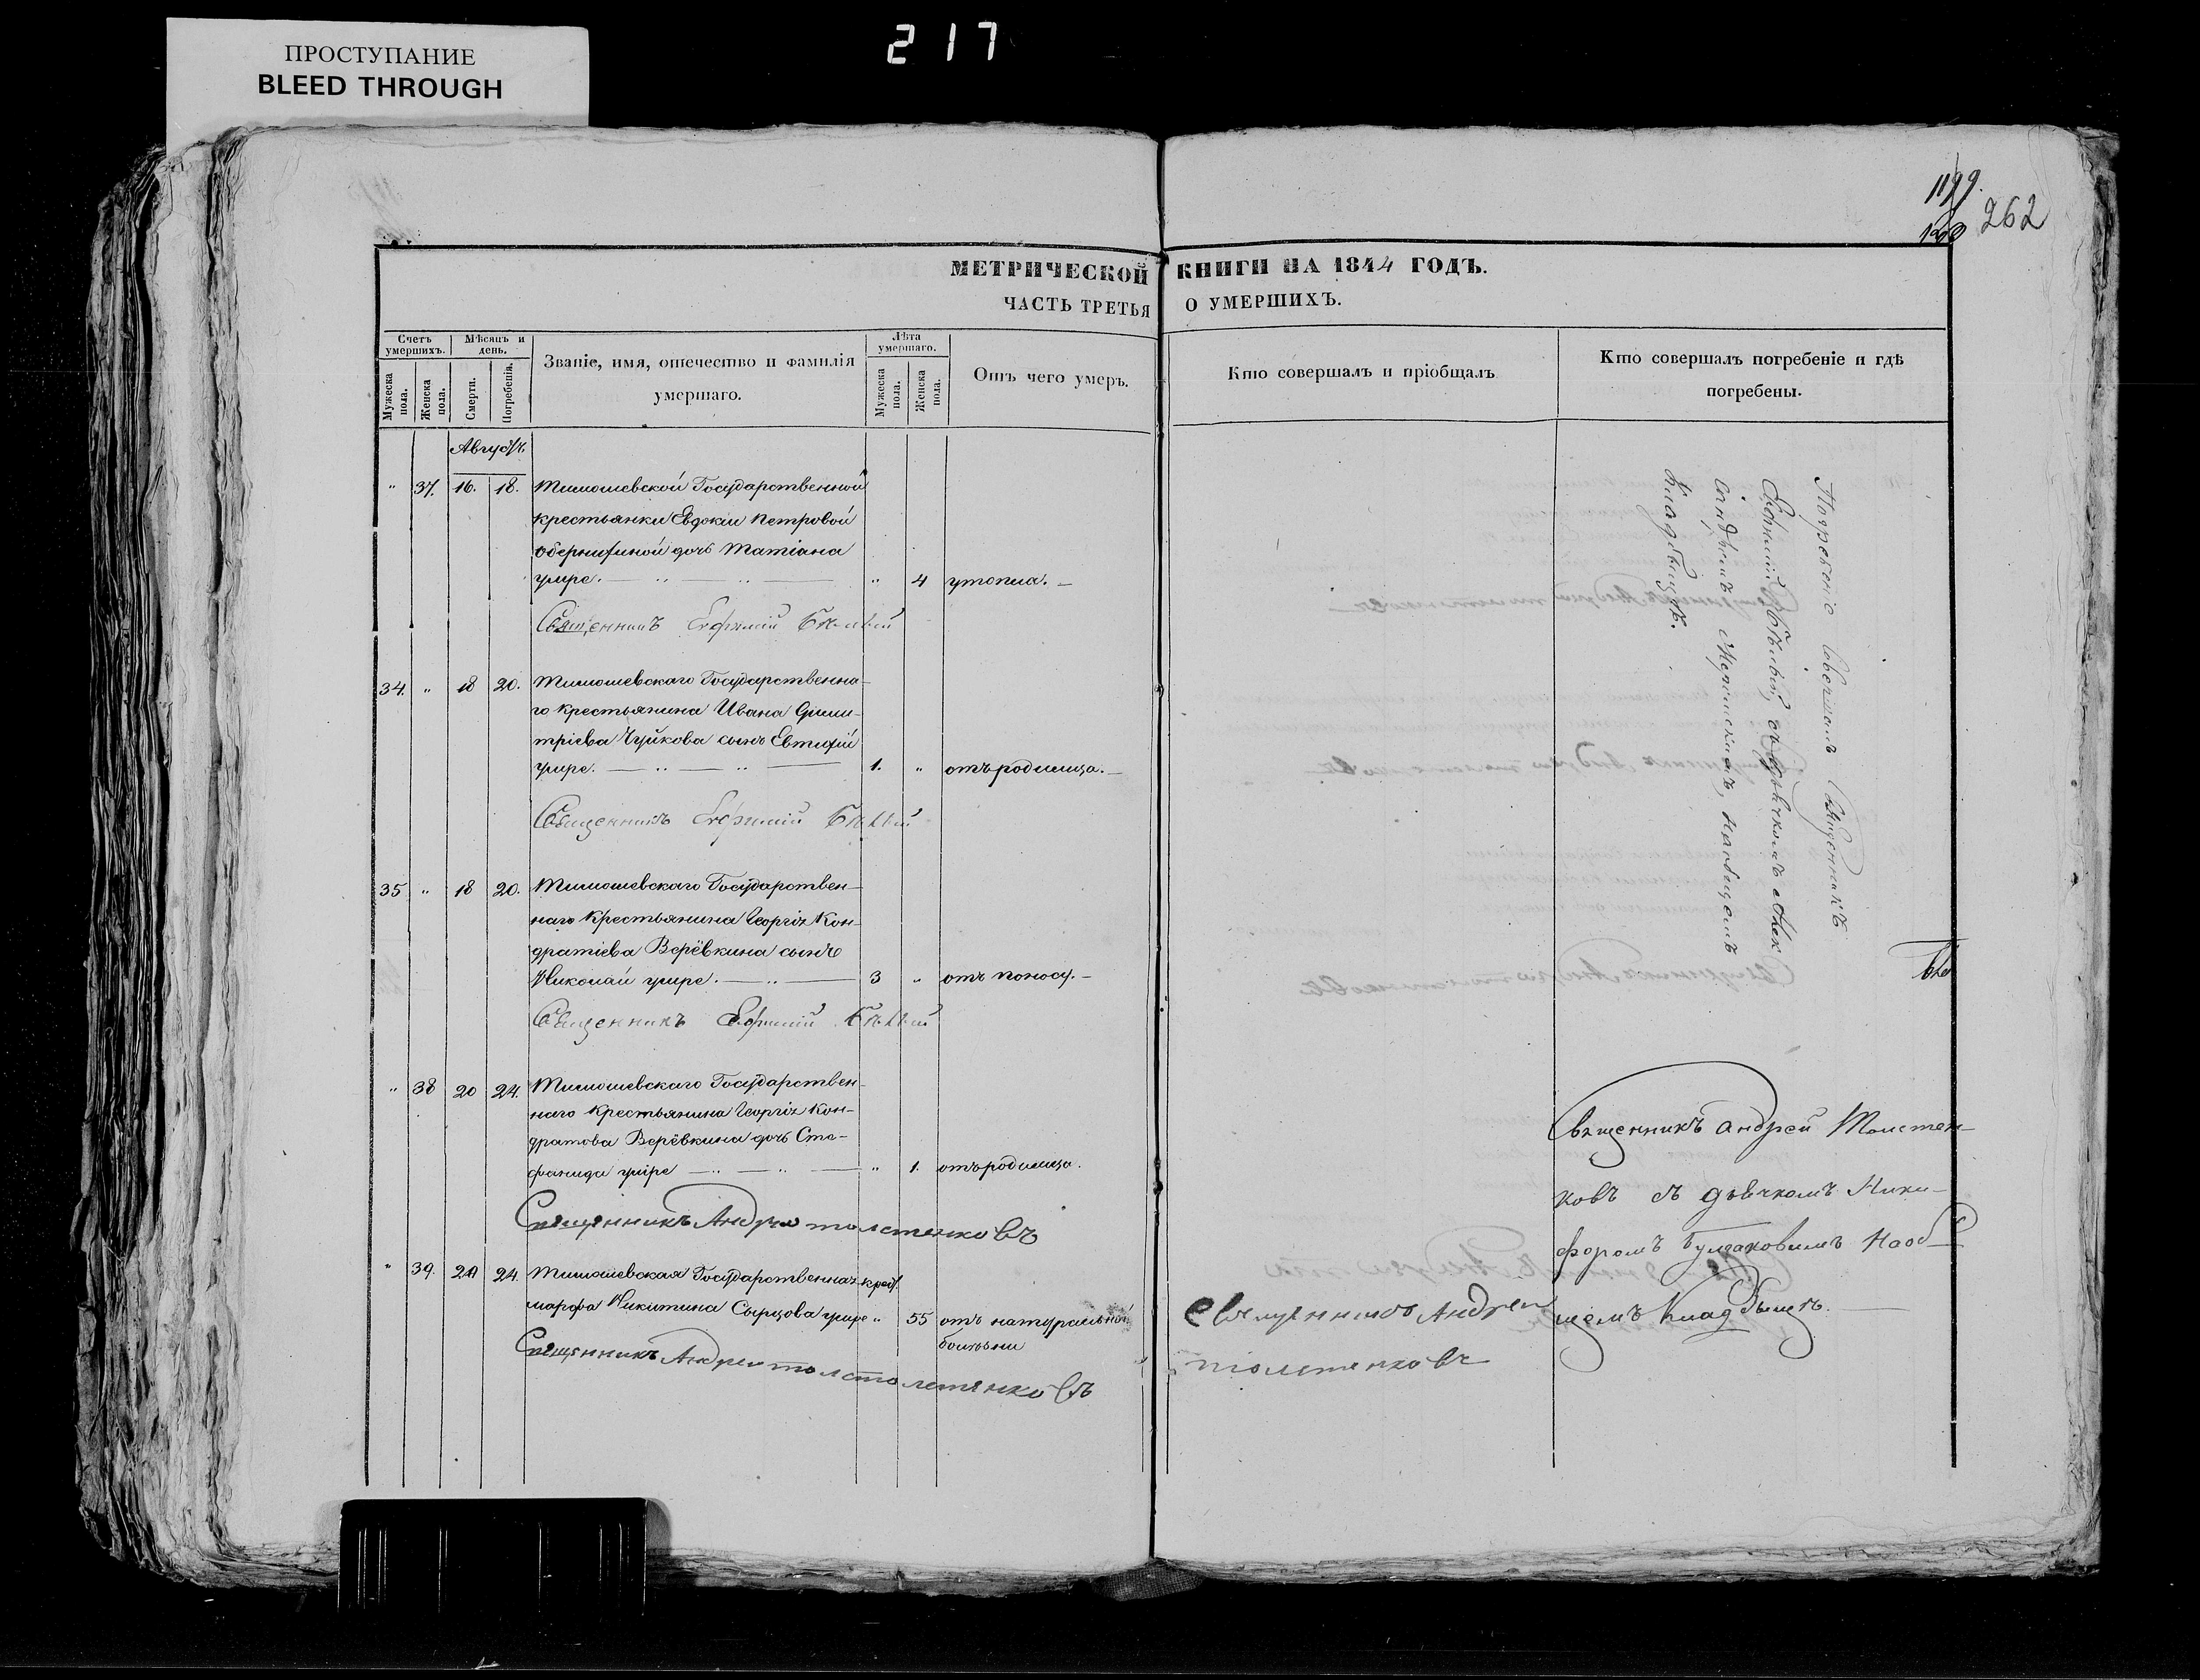 ПРОСТУПАНИЕ
BLEED THROUGH
217
262
МЕТРИЧЕСКОЙ КНИГИ НА 1844 ГОДЪ.
ЧАСТЬ ТРЕТЬЯ О УМЕРШИХЪ.
Счетъ умершихъ.
Мѣсяцъ и день.
Званіе, имя, отечество и фамилія умершаго.
Лѣта умершаго.
Отъ чего умеръ.
Кто совершалъ и пріобщалъ
Кто совершалъ погребеніе и гдѣ погребены.
Мужеска пола.
Женска пола.
Смерти.
Погребенія.
Мужеска пола.
Женска пола.
Августъ
" 37. 16. 18. Тимошевской Государственной
крестьянки Евдокіи Петровой
дочь Татіана
умре. " 4 утопла.
Священникъ Ефимій Бѣлый
34. " 18 20. Тимошевскаго Государственна-
го крестьянина Ивана Дими-
тріева Чуйкова сынъ Евтифій
умре. 1. " отъ родимца.
Священникъ Ефимій Бѣлый
35 " 18 20. Тимошевскаго Государствен-
наго крестьянина Георгія Кон-
дратіева Верёвкина сынъ
Николай умре. 3 " отъ поносу.
Священникъ Ефимій Бѣлый
" 38 20 24. Тимошевскаго Государствен-
наго крестьянина Георгія Кон-
дратова Верёвкина дочь Сте-
фанида умре " 1. отъ родимца.
Священникъ Андрей Толстенковъ
" 39. 24. Тимошевская Государственная крест.
Марфа Никитина Сырцова умре " 55 отъ натуральной
болѣзни
Священникъ Андрей
Священникъ Андрей
Толстенковъ
Погребеніе совершалъ Священникъ
Ефимій Бѣлый, съ дьячкомъ Алек
сандромъ на общемъ
кладбищѣ.
Священникъ Андрей Толстен-
ковъ съ дьячкомъ Ники-
форомъ Булгаковымъ на об-
щемъ кладбищѣ.